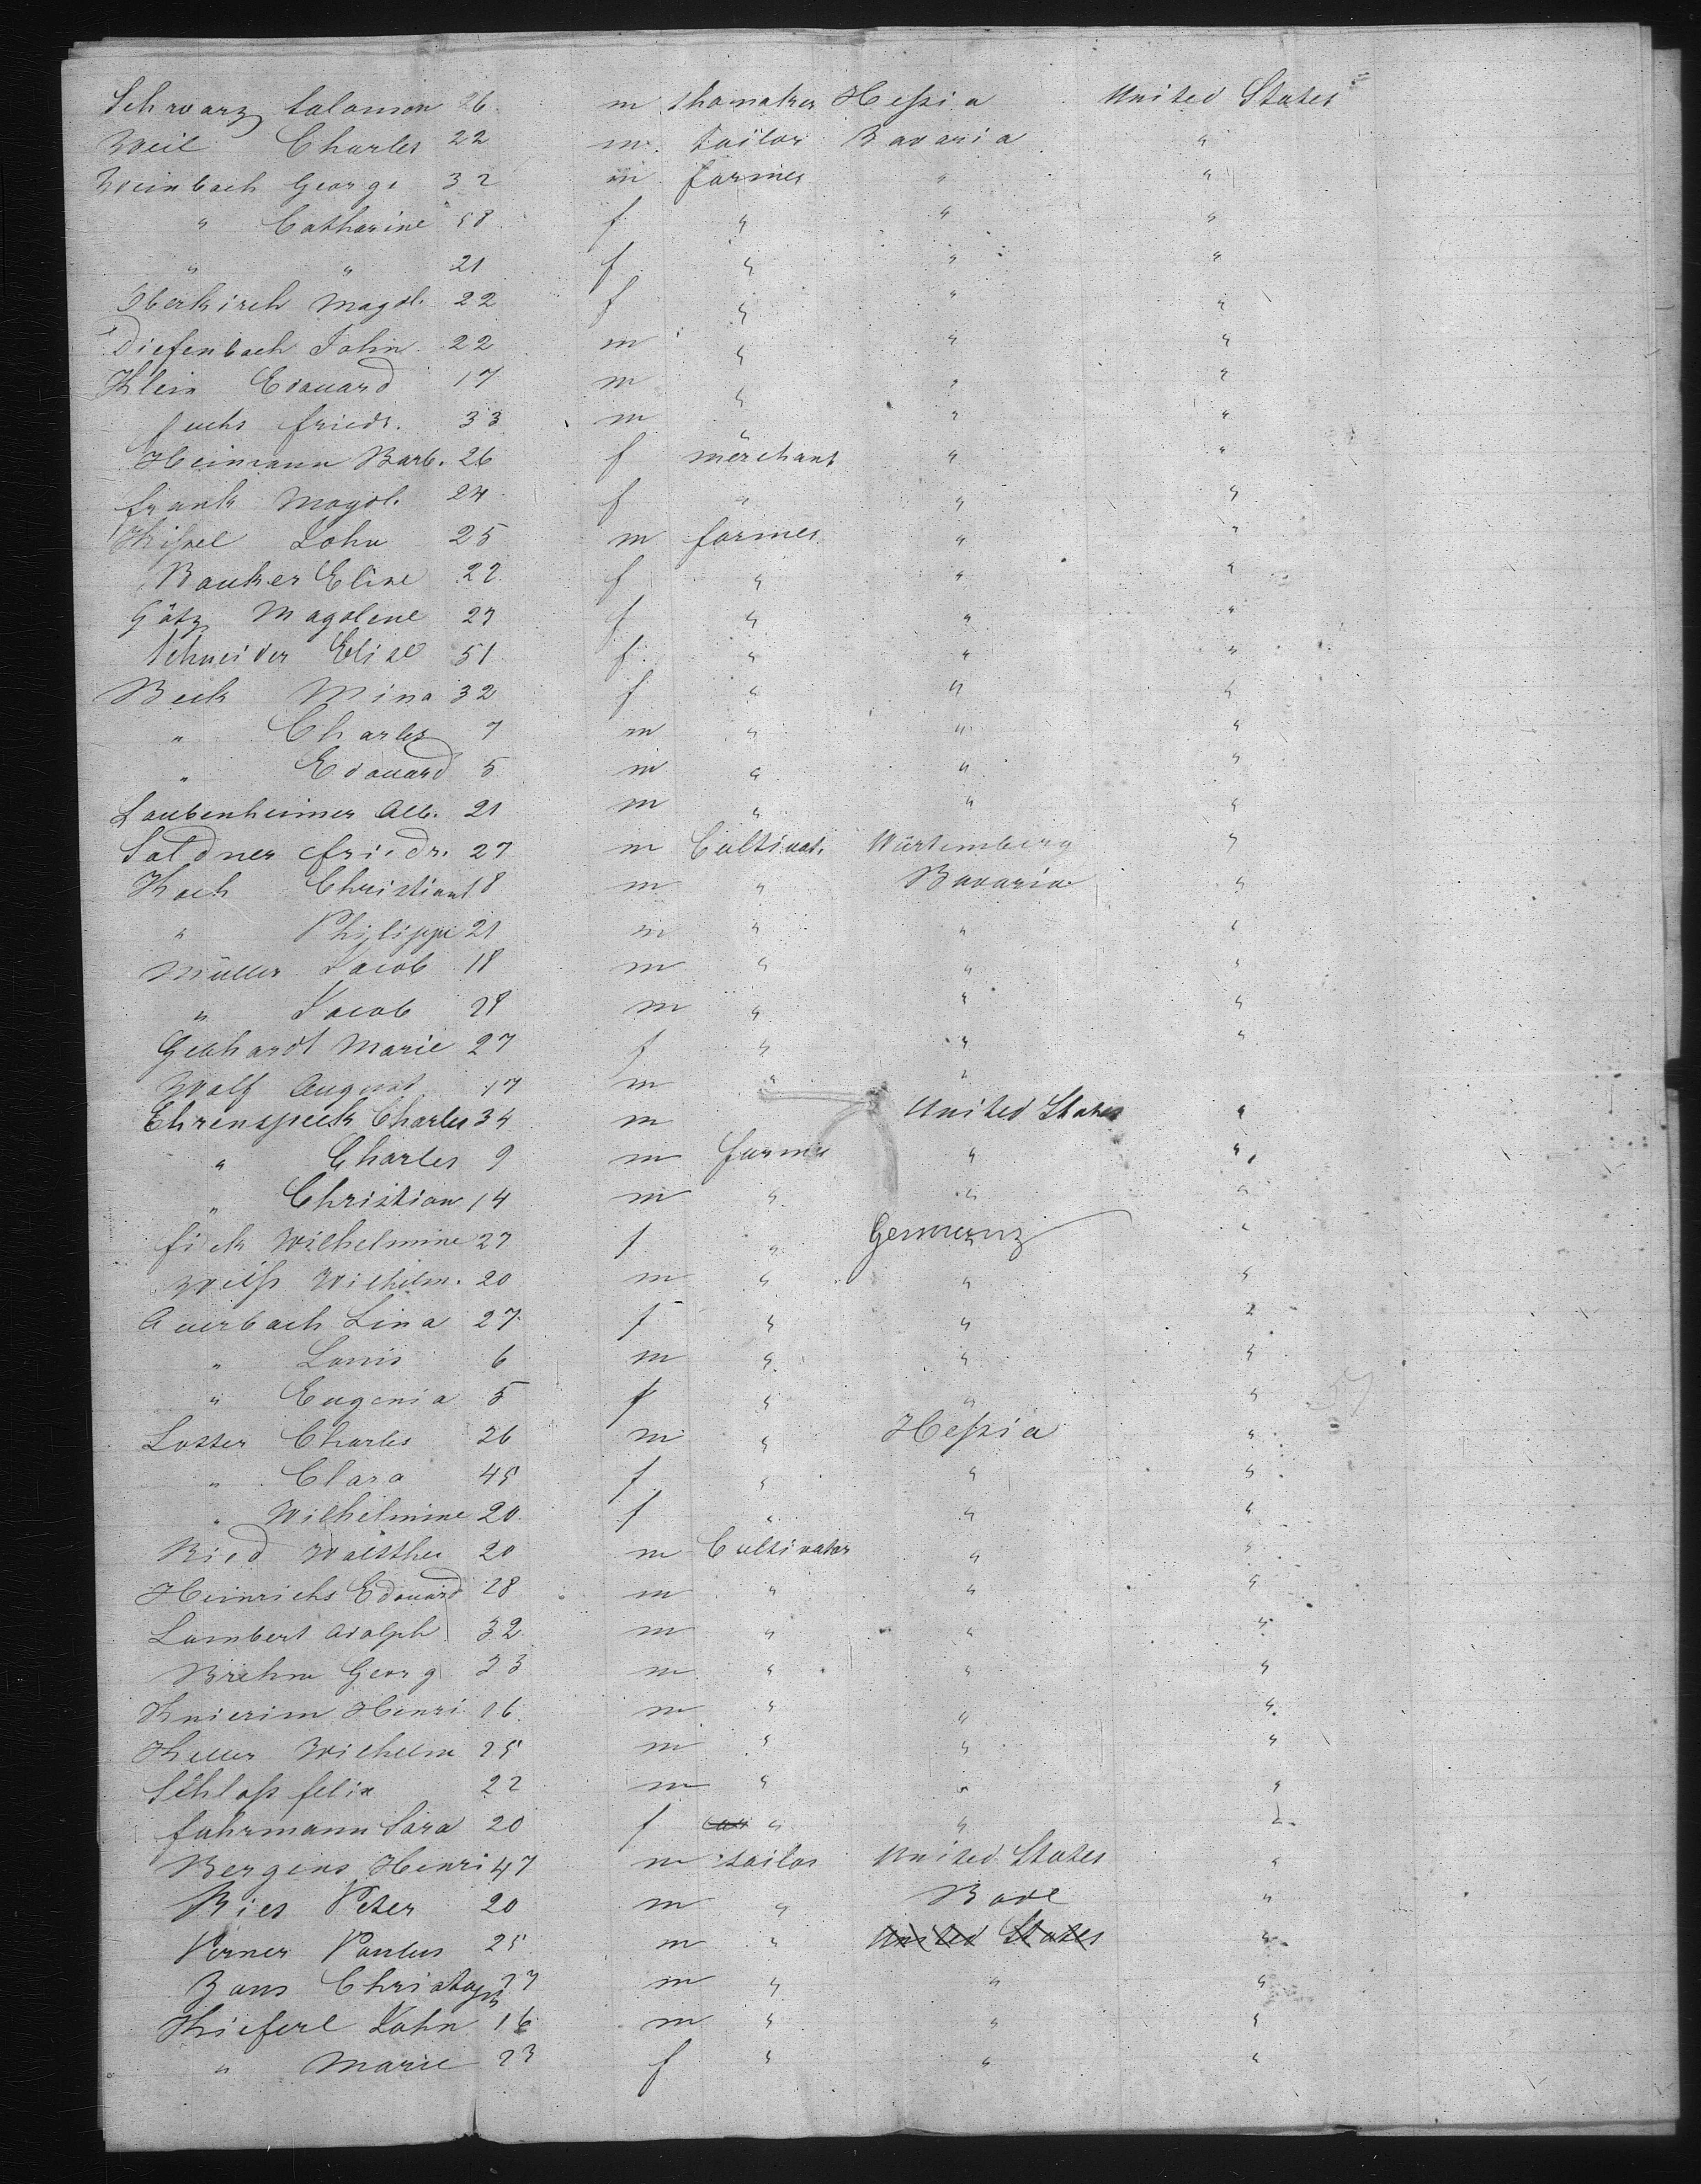 Schwarz Salomon 26 m shomaker Heßia United States
Weil Charles 22 m tailor Bavaria "
Weinbach George 32 m farmer " "
" Catharine 58 f " " "
" " 21 f " " "
Oberkirch Magd. 22 f " " "
Diefenbach John 22 m " " "
Klein Edouard 17 m " " "
fuchs friedr. 33 m " " "
Heimann Barb. 26 f merchant " "
frank Magd. 24 f " " "
Kißel John 25 m farmer " "
Bauker Elise 22 f " " "
Götz Magdlene 27 f " " "
Schneider Elise 51 f " " "
Beck Mina 32 f " " "
" Charles 7 m " " "
" Edouard 5 m " " "
Laubenheimer Alb. 21 m " " "
Saldner friedr. 27 m Cultivat. Würtemberg "
Koch Christian 18 m " Bavaria "
" Philippe 21 m " " "
Müller Jacob 18 m " " "
" Jacob 28 m " " "
Gebhardt Marie 27 f " " "
Wolf August 17 m " "
Ehrenspeck Charles 34 m United States "
" Charles 9 m farmer " "
" Christian 14 m " " "
fick Wilhelmine 27 f " Germany "
Weiß Wilhelm. 20 m " " "
Auerbach Lina 27 f " " "
" Louis 6 m " " "
" Eugenia 5 f " " "
Lotter Charles 26 m " Heßia "
" Clara 45 f " " "
" Wilhelmine 20 f " " "
Ried Walther 20 m Cultivator " "
Heinrichs Edouard 28 m " " "
Lambert Adolph 32 m " " "
Brehm Georg 23 m " " "
Knierim Henri 16 m " " "
Keller Wilhelm 25 m " " "
Schloß felix 22 m " " "
fuhrmann Sara 20 f " " "
Bergens Henri 47 m tailor United States "
Ries Peter 20 m " Bade "
Verner Paulus 25 m " United States "
Zans Christoph 27 m " " "
Kieferl John 16 m " " "
" Marie 23 f " " "